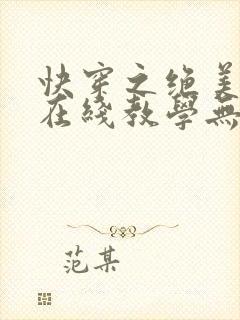 快穿之绝美
在綫教學無
范某